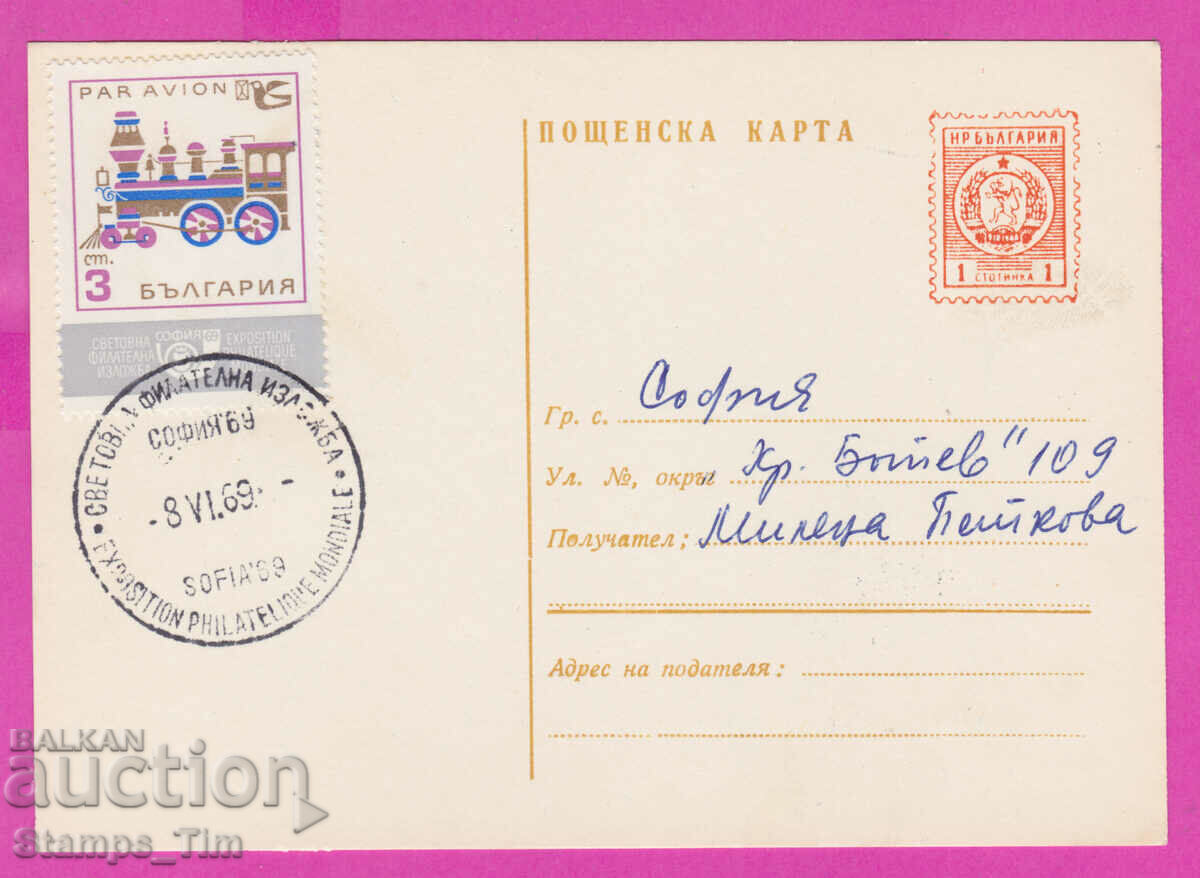 PAR AVION
ст.
3 БЪЛГАРИЯ
СВЕТОВНА
ФИЛАТЕЛНА
ИЗЛОЖБА
СОФИЯ 69
EXPOSITION
PHILATELIQUE
СВЕТОВНА ФИЛАТЕЛНА ИЗЛОЖБА
СОФИЯ'69
-8 VI.69. -
SOFIA'69
EXPOSITION PHILATELIQUE MONDIALE
ПОЩЕНСКА КАРТА
НР БЪЛГАРИЯ
1 СТОТИНКА 1
Гр. с. София
Ул. №, окръг „Хр. Ботев" 109
Получател: Милена Петкова
Адрес на подателя:
BALKAN
auction
Stamps_Tim